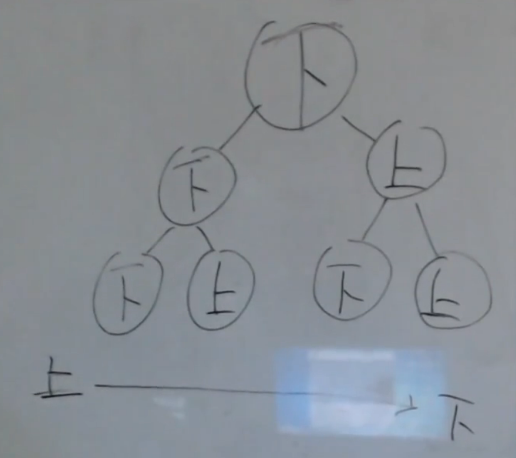 下
下 上
下 上 下 上
上 下